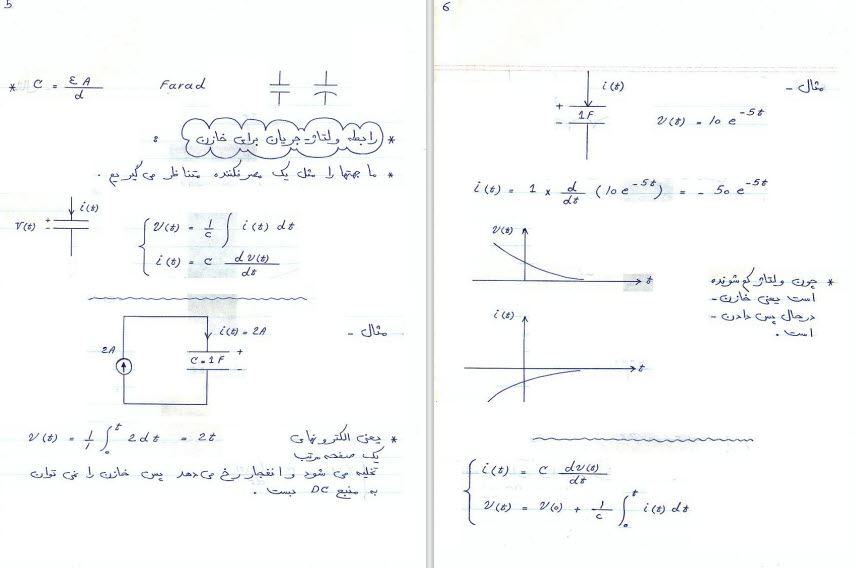 5
* C = εA/d Farad
* رابطه ولتاژ-جریان برای خازن :
* ما جهتها را مثل یک مصرفکننده متناظر می‌گیریم .
i(t)
V(t) + -
V(t) = 1/C ∫ i(t) dt
i(t) = C dV(t)/dt
مثال -
2A
i(t) = 2A
C = 1F
+
-
* یعنی الکترونهای
V(t) = 1/1 ∫₀ᵗ 2dt = 2t
یک صفحه مرتب
تخلیه می شود و انفجار رخ می‌دهد پس خازن را نمی توان
به منبع DC بست .
6
مثال -
i(t)
+ 1F -
V(t) = 10 e^-5t
i(t) = 1 × d/dt (10e^-5t) = - 50 e^-5t
V(t)
t
* چون ولتاژ کم شونده
است یعنی خازن -
درحال پس دادن -
است .
i(t)
t
i(t) = C dV(t)/dt
V(t) = V(0) + 1/C ∫₀ᵗ i(t) dt